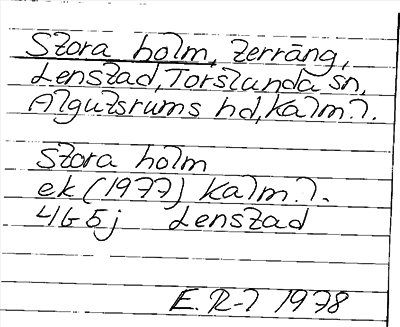 Stora holm, terräng,
Lenstad, Torslunda sn,
Algutsrums hd, Kalm.l.
Stora holm
ek (1977) Kalm.l.
4G5j Lenstad
E.R-l 1978